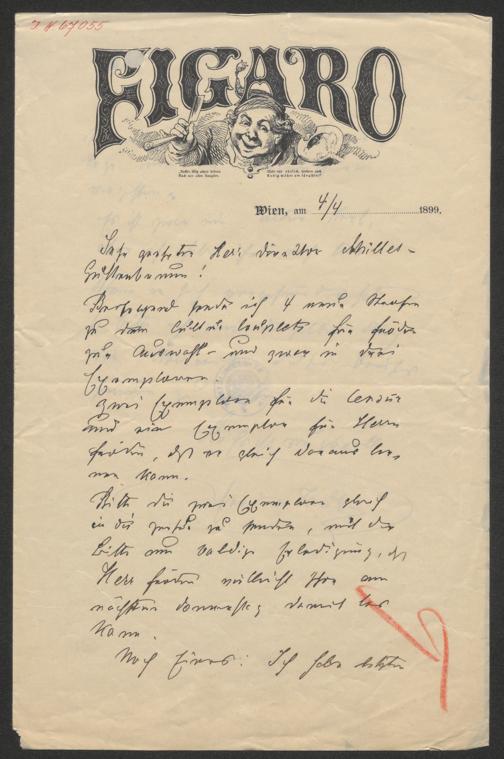 J. N. 67055
FIGARO
Wien, am 4/4 1899.
Sehr geehrter Herr Direktor Müller-
Guttenbrunn!
sende ich 4 neue
zu dem Couplets für
zur Auswahl – und zwar in drei
Exemplaren
zwei Exemplare für die Censur
und ein Exemplar für Herrn
, daß er gleich daraus ler-
nen kann.
Bitte die zwei Exemplare gleich
in die zu senden, mit der
Bitte um baldige Erledigung, daß
Herr vielleicht schon am
nächsten Donnerstag damit los
kann.
Noch Eines: Ich habe